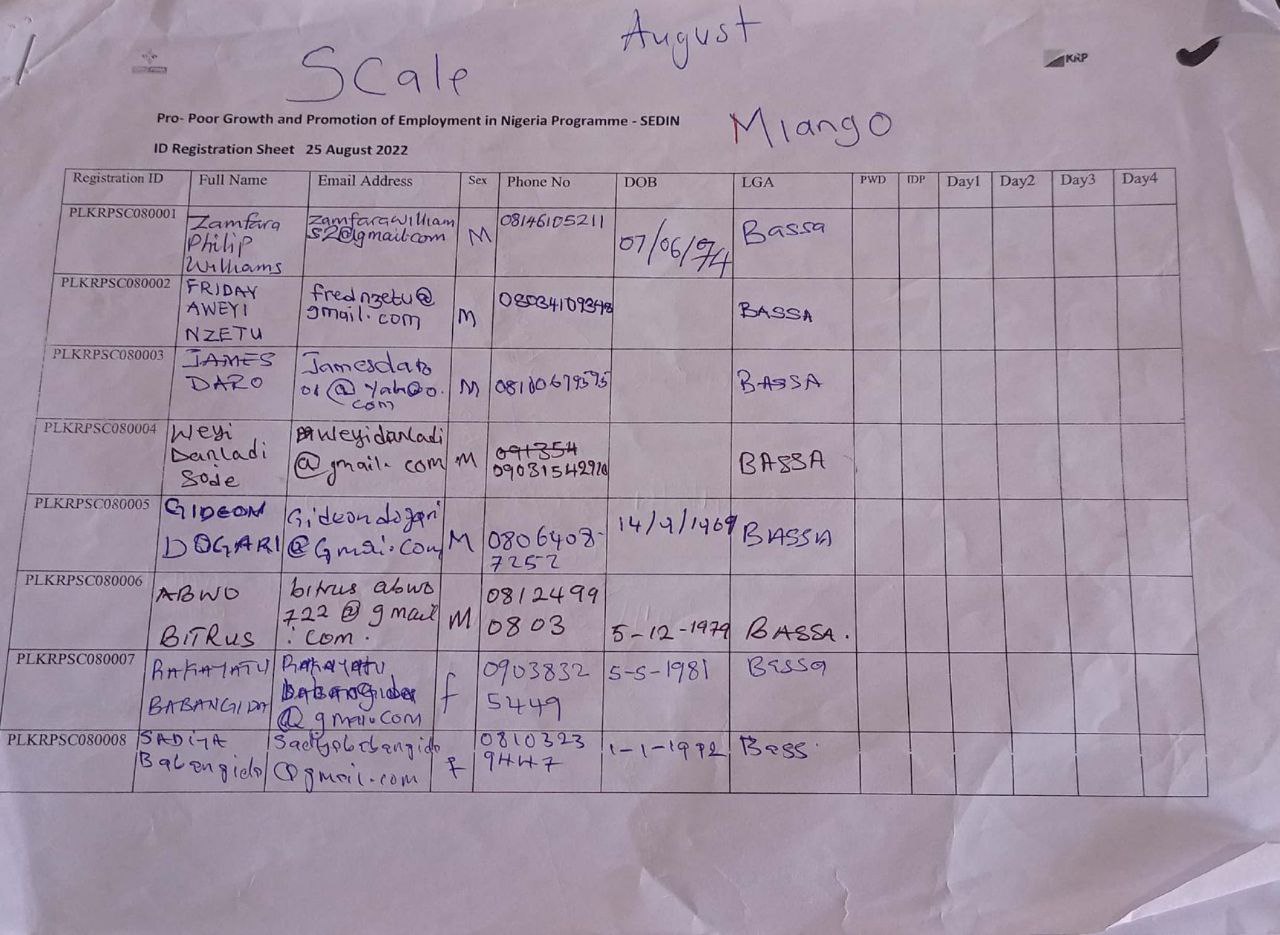 August
Scale
KRP
Pro- Poor Growth and Promotion of Employment in Nigeria Programme - SEDIN
Miango
ID Registration Sheet 25 August 2022
Registration ID Full Name Email Address Sex Phone No DOB LGA PWD IDP Day1 Day2 Day3 Day4
PLKRPSC080001
Zamfara
Philip
Williams
zamfarawilliam
s2@gmail.com
M
08146105211
07/06/74
Bassa
PLKRPSC080002
FRIDAY
AWEYI
NZETU
frednzetu@
gmail.com
M
08034109348
BASSA
PLKRPSC080003
JAMES
DARO
Jamesdaro
01@yahoo.
com
M
BASSA
PLKRPSC080004
Weyi
Danladi
weyidanladi
@gmail.com
M
091354
BASSA
PLKRPSC080005
GIDEON
DOGARI
Gideondogari
@Gmai.com
M
0806408-
7252
BASSA
PLKRPSC080006
ABWO
BITRUS
bitrus abwo
722@gmail
.com.
M
0812499
0803
5-12-1979
BASSA.
PLKRPSC080007
RAKAYATU
BABANGIDA
Rakayatu
Babangida
@gmail.com
f
0903832
5449
5-5-1981
Bassa
PLKRPSC080008
SADIYA
Babangida
@gmail.com
f
0810323
9447
Bass.